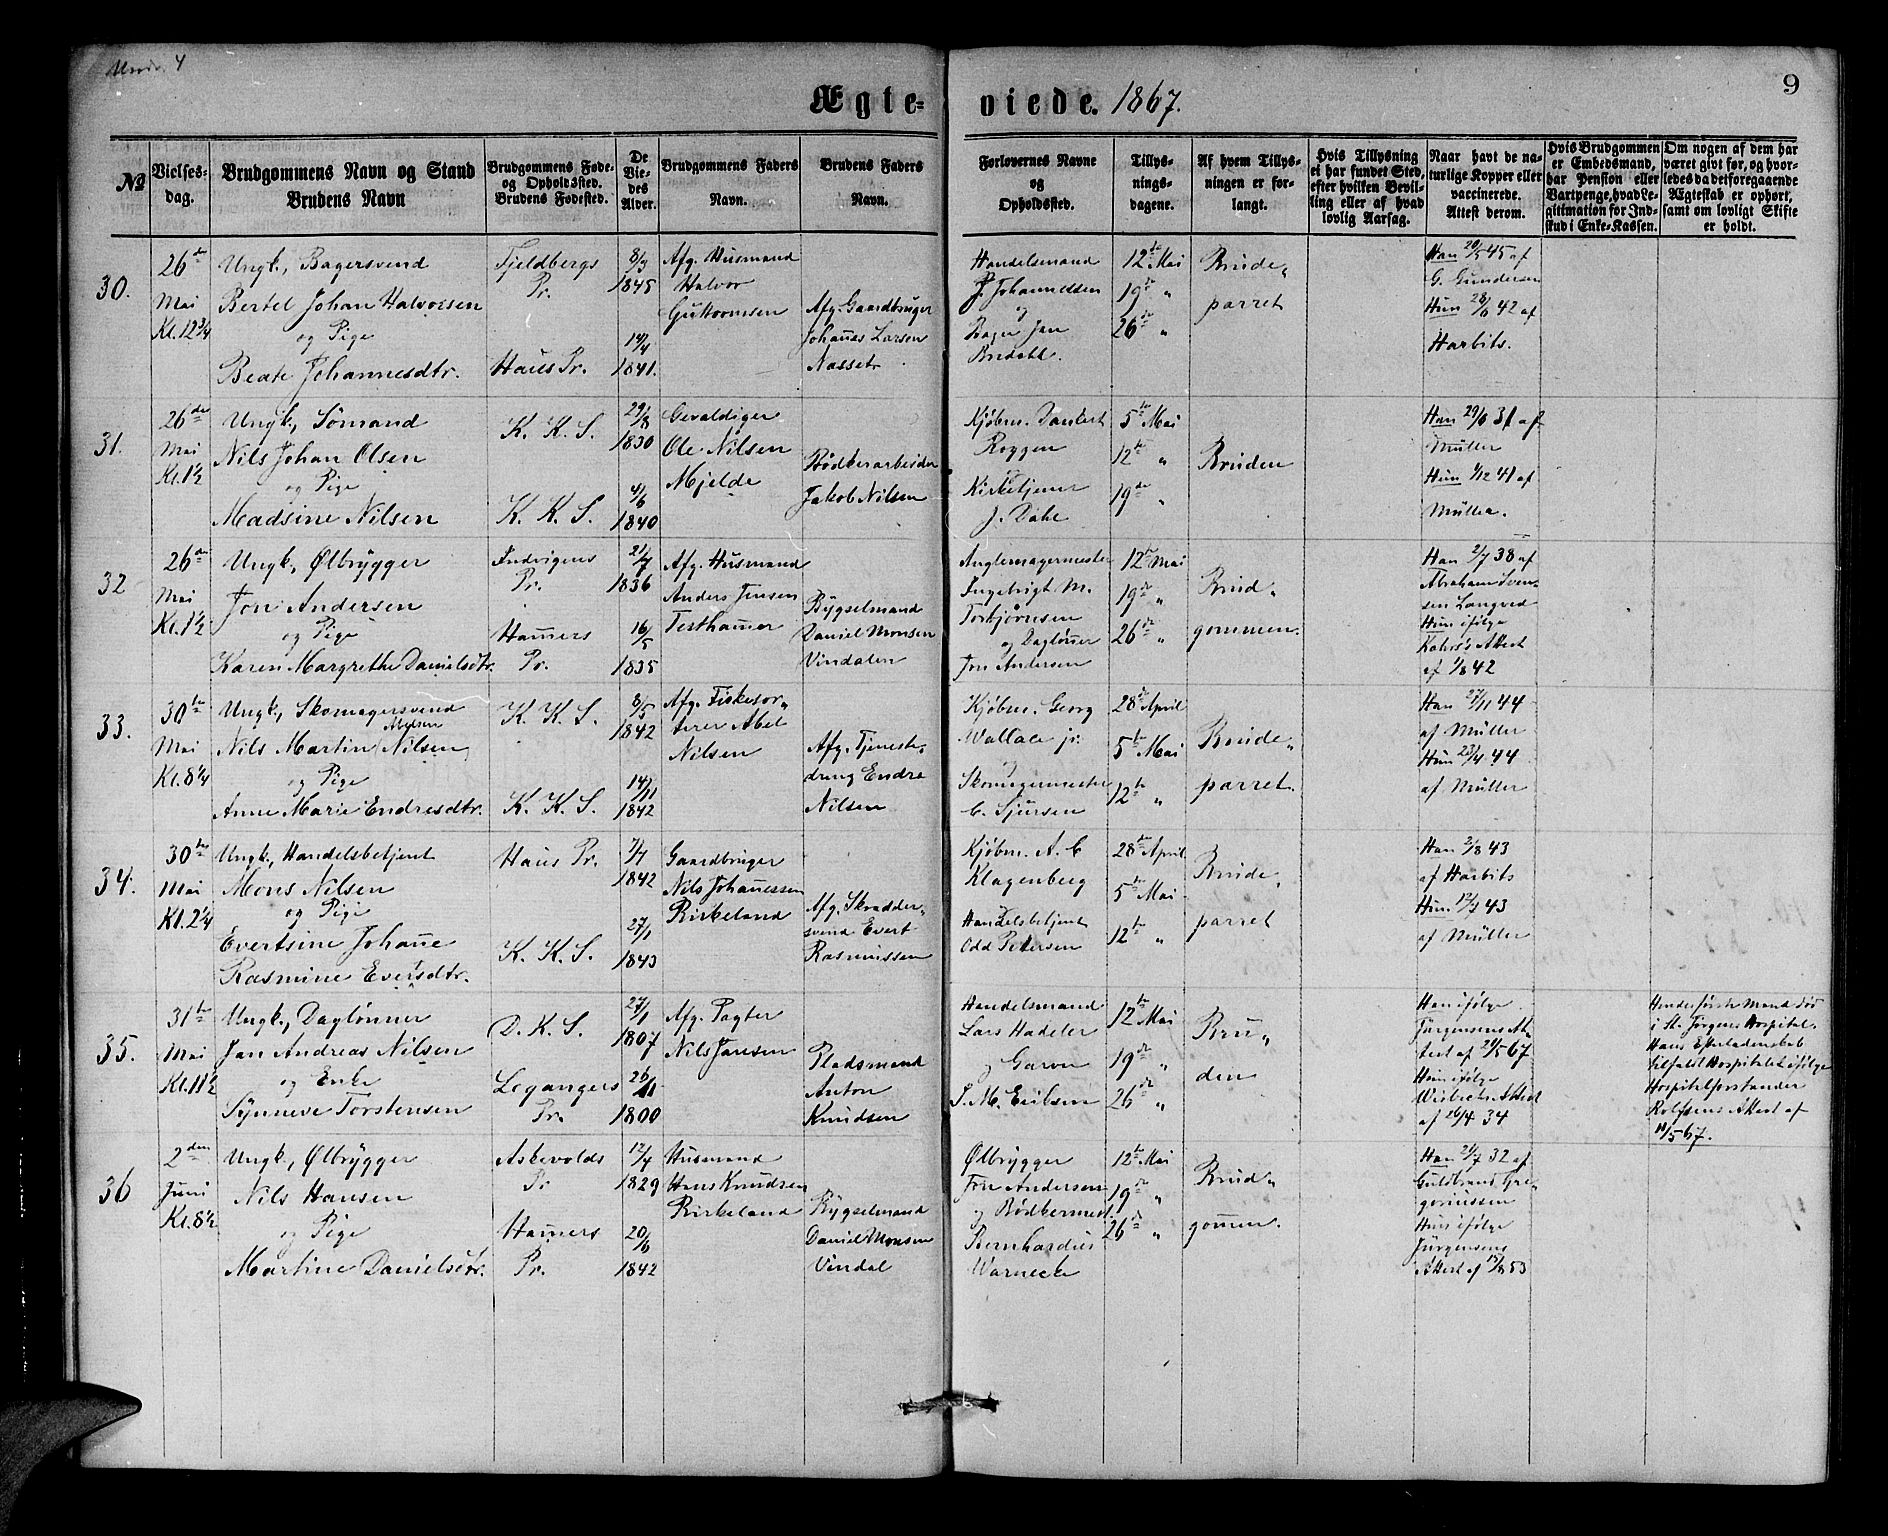 Ægte-
viede. 1867.
9
No
Vielses-
dag.
Brudgommens Navn og Stand
Brudens Navn
Brudgommens Føde-
og Opholdssted.
Brudens Fødested.
De
Vie-
des
Alder.
Brudgommens Faders
Navn.
Brudens Faders
Navn.
Forlovernes Navne
og
Opholdssted.
Tillys-
nings-
dagene.
Af hvem Tillys-
ningen er for-
langt.
Hvis Tillysning
ei har fundet Sted,
efter hvilken Bevil-
ling eller af hvad
lovlig Aarsag.
Naar havt de na-
turlige Kopper eller
vaccinerede.
Attest derom.
Hvis Brudgommen
er Embedsmand,
har Pension eller
Vartpenge, hvad Le-
gitimation for Ind-
skud i Enke-Kassen.
Om nogen af dem har
været givt før, og hvor-
ledes da det foregaaende
Ægteskab er ophørt,
samt om lovligt Skifte
er holdt.
30.
26de
Mai
Kl. 12 3/4
Ungk., Bagersvend
Bertel Johan Halvorsen
og Pige
Beate Johannesdtr.
Fjeldbergs
Pr.
Haus Pr.
8/3
1845
14/4
1841.
Afg. Husmand
Halvor
Guttormsen
Afg. Gaardbruger
Johañes Larsen
Nasset
Handelsmand
J. Johannessen
og
Bager Jan
Bredahl.
12te Mai
19de "
26de "
Brude"
parret
Han 20/5 45 af
G. Gundersen
Hun 28/6 42 af
Harbits.
31.
26de
Mai
Kl. 1 1/2
Ungk., Sömand
Nils Johan Olsen
og Pige
Madsine Nilsen
K. K. S.
K. K. S.
29/8
1830
4/6
1840
Gevaldiger
Ole Nilsen
Mjelde
Bödkerarbeider
Jakob Nilsen
Kjöbm. Dankert
Roggen
Kirketjener
J. Dahl
5te Mai
12te "
19de "
Bruden
Han 29/6 31 af
Müller
Hun 1/12 41 af
Müller.
32
26de
Mai
Kl. 1 1/2
Ungk., Ølbrÿgger
Jon Andersen
og Pige
Karen Margrethe Danielsdtr.
Indvigens
Pr.
Hamers
Pr.
21/7
1836
16/5
1835
Afg. Husmand
Anders Jensen
Testhamer
Bÿgselmand
Daniel Monsen
Vindalen
Anglemagermester
Ingebrigt M.
Torbjörnsen
og Daglöner
Jon Andersen
12te Mai
19de "
26de "
Brud"
gommen.
Han 2/7 38 af
Abraham Sven-
sen Langved
Hun ifölge
Kahrs's Attest
af 1/8 42
33.
30te
Mai
Kl. 8 1/4
Ungk., Skomagersvend
Abelsen
Nils Martin Nilsen
og Pige
Anne Marie Endresdtr.
K. K. S.
K. K. S.
8/5
1842
14/11
1842
Afg. Fiskesor"
terer Abel
Nilsen
Afg. Tjeneste"
dreng Endre
Nilsen
Kjöbm. Georg
Wallace jr.
Skomagermester
C. Sjursen
28de April
5te Mai
12te "
Brude"
parret.
Han 27/11 44
af Müller
Hun 23/4 44
af Müller
34.
30te
Mai
Kl. 2 1/4
Ungk., Handelsbetjent
Mons Nilsen
og Pige
Evertsine Johañe
Rasmine Evertsdtr.
Haus Pr.
K. K. S.
7/7
1842
27/1
1843
Gaardbruger
Nils Johañessen
Birkeland
Afg. Skrædder"
svend Evert
Rasmussen
Kjöbm. A. C
Klagenberg
Handelsbetjent
Odd Petersen
28de April
5te Mai
12te "
Brude"
parret
Han 2/8 43
af Harbits
Hun 12/9 43
af Müller
35.
31te
Mai
Kl. 11 1/2
Ungk., Daglönner
Jan Andreas Nilsen
og Enke
Sÿnneve Torstensen
D. K. S.
Leganger
Pr.
27/1
1807
26/11
1800
Afg. Pagter
Nils Jansen
Pladsmand
Anton
Knudsen
Handelsmand
Lars Hadeler
Garver
J. M. Erilsen
12te Mai
19de "
26de "
Bru"
den
Han ifölge
Jürgensens At-
test af 24/5 67
Hun ifölge
Wisbechs Attest
af 26/4 34
Hendes förste Mand döe
i St. Jörgens Hospital.
Hans Efterladenskab
tilfaldt Hospitalet ifölge
Hospitalforstander
Rolfsens Attest af
11/5 67.
36
2den
Juni
Kl. 8 1/2
Ungk., Ølbrÿgger
Nils Hansen
og Pige
Martine Danielsdtr.
Askevolds
Pr
Hamers
Pr.
12/4
1829
20/6
1842
Husmand
Hans Knudsen
Birkeland
Bÿgselmand
Daniel Monsen
Vindal
Ølbrÿgger
Jon Andersen
og Bödkermest.
Bernhardus
Warnecke
12te Mai
19de "
26de "
Brud"
gomen.
Han 21/7 32 af
Guldbrand Gre-
goriussen
Hun ifölge
Jürgensens
Attest af 15/8 53